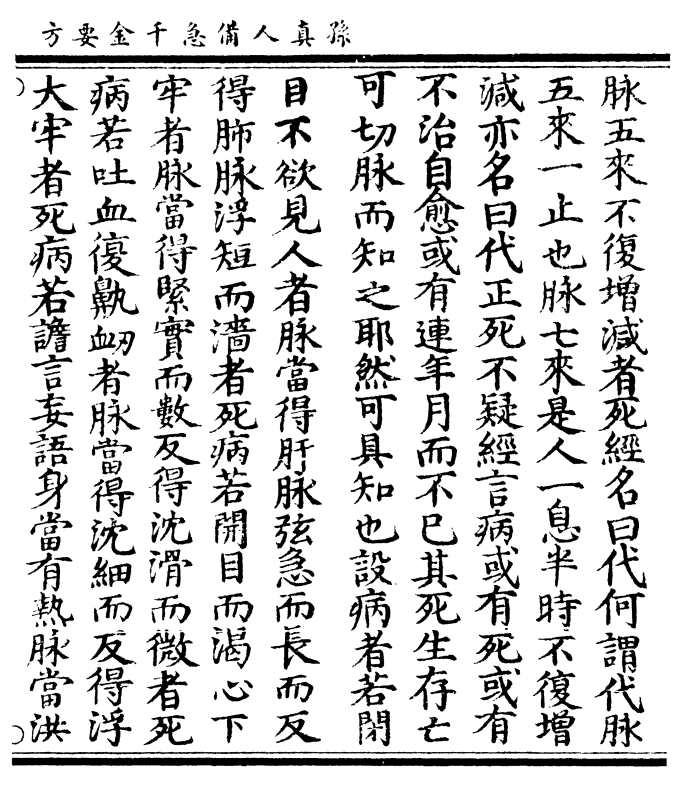 孫真人備急千金要方
脉五來不復增減者死經名曰代何謂代脉
五來一止也脉七來是人一息半時不復增
減亦名曰代正死不疑經言病或有死或有
不治自愈或有連年月而不已其死生存亡
可切脉而知之耶然可具知也設病者若閉
目不欲見人者脉當得肝脉弦急而長而反
得肺脉浮短而濇者死病若開目而渴心下
牢者脉當得緊實而數反得沈滑而微者死
病若吐血復鼽衂者脉當得沈細而反得浮
大牢者死病若譫言妄語身當有熱脉當洪